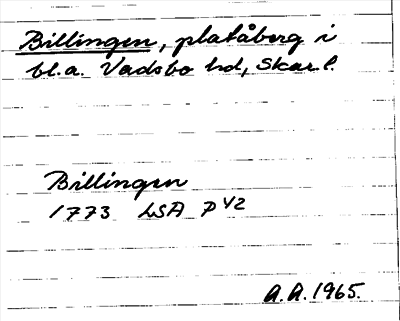 Billingen, platåberg i
bl.a. Vadsbo hd, Skar.l.
Billingen
1773 LSA P42
A.A. 1965.